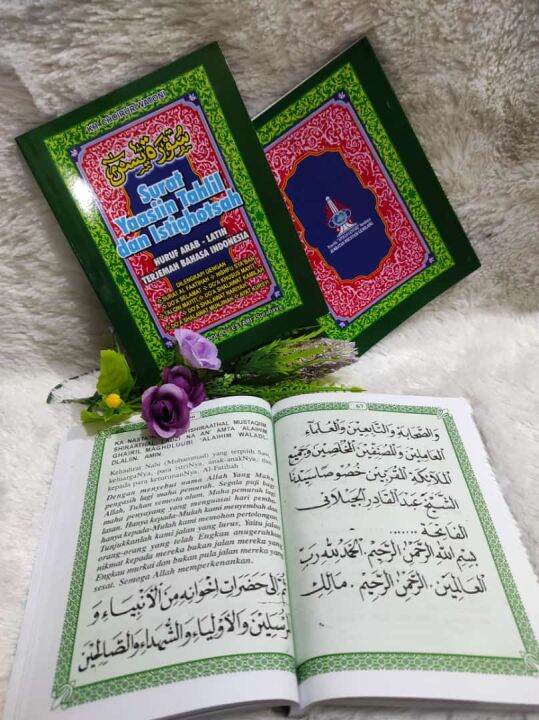 KH. CHOIRUR WADONI
سورة يس
Surat
Yaasiin Tahlil
dan Istighotsah
HURUF ARAB - LATIN
TERJEMAH BAHASA INDONESIA
DILENGKAPI DENGAN
SHIRAATHAL MUSTAQIIM
GHAIRIL MAGHDLUUBI 'ALAIHIM WALADL-
DLALIN. AMIN.
Kehadirat Nabi (Muhammad) yang terpilih Saw,
keluargaNya, para istriNya, anak-anakNya, dan
kepada para keturunanNya. Al-Fatihah
Dengan menyebut nama Allah Yang Maha
pengasih lagi maha pemurah. Segala puji bagi
Allah, Tuhan semesta alam. Maha pemurah lagi
maha penyayang yang menguasai hari pemba-
lasan. Hanya kepada-Mulah kami menyembah dan
hanya kepada-Mulah kami memohon pertolongan.
Tunjukkanlah kami jalan yang lurus, Yaitu jalan
orang-orang yang telah Engkau anugerahkan
nikmat kepada mereka bukan jalan mereka yang
Engkau murkai dan bukan pula jalan mereka yang
sesat. Semoga Allah memperkenankan.
ثم إلى حضرات إخوانه من الأنبياء و
المرسلين والأولياء والشهداء والصالحين
67
والصحابة والتابعين والعلماء
العاملين والمصنفين المخلصين وجميع
الملائكة المقربين خصوصا سيدنا
الشيخ عبد القادر الجيلاني
الفاتحة
بسم الله الرحمن الرحيم. الحمد لله رب
العالمين. الرحمن الرحيم. مالك